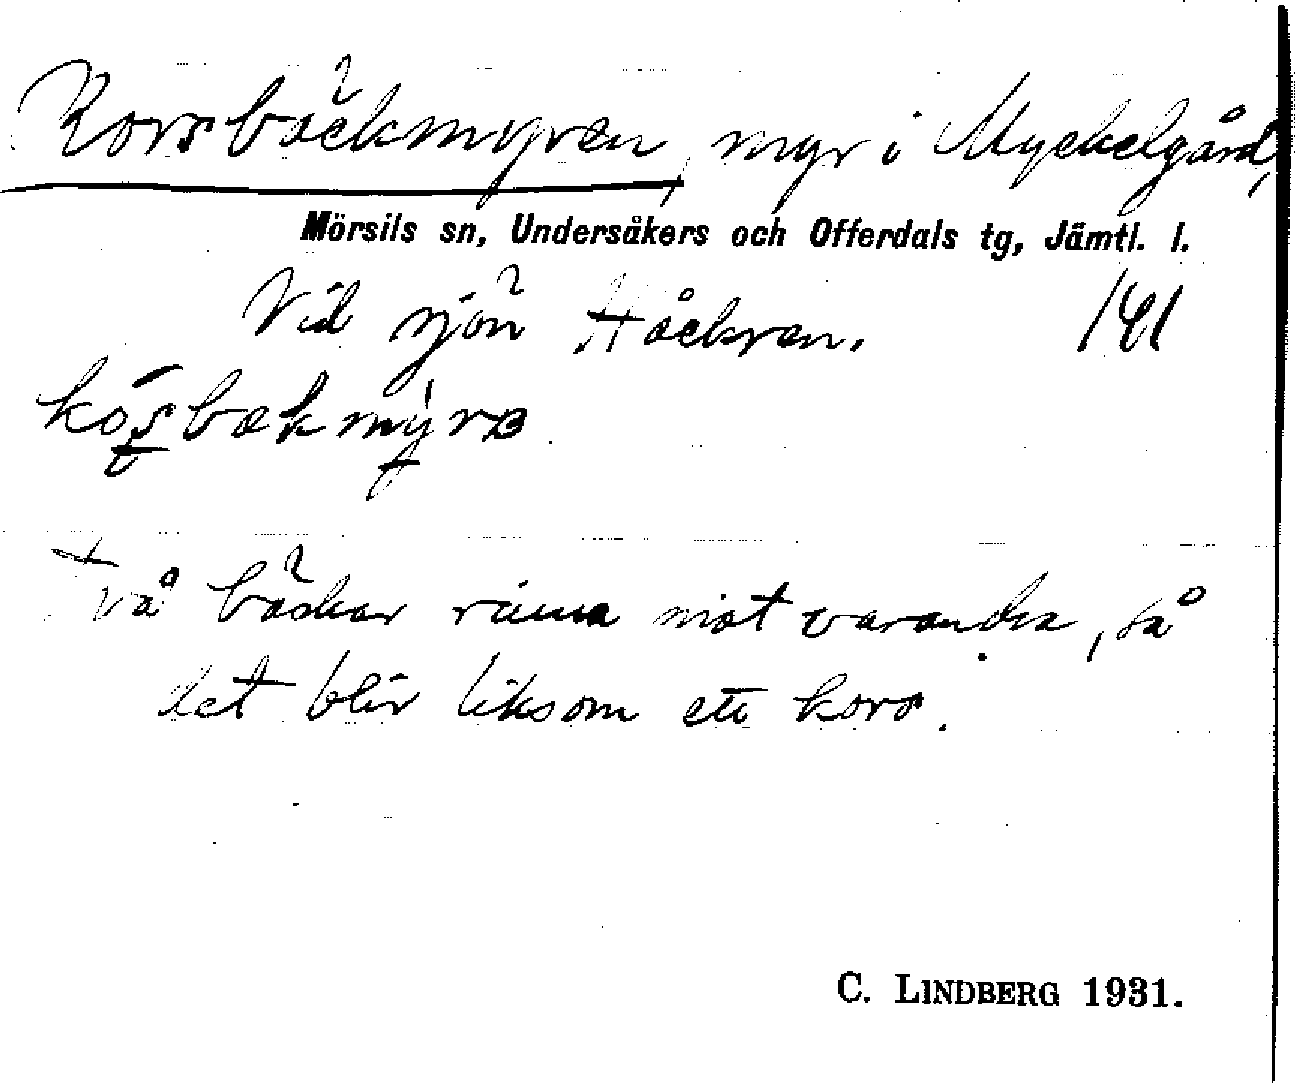 Korsbäckmyren, myr i Myckelgård,
Mörsils sn, Undersåkers och Offerdals tg, Jämtl. l.
Vid sjön Håckren. 141
Två bäckar rinna mot varandra, så
det blir liksom ett kors.
C. LINDBERG 1931.